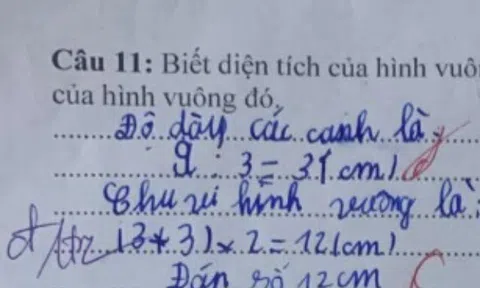 Câu 11: Biết diện tích của hình vuô
của hình vuông đó.
Độ dày các cạnh là:
9 : 3 = 3 (cm)
Chu vi hình vuông là:
(3 + 3) x 2 = 12 (cm)
Đáp số 12 cm